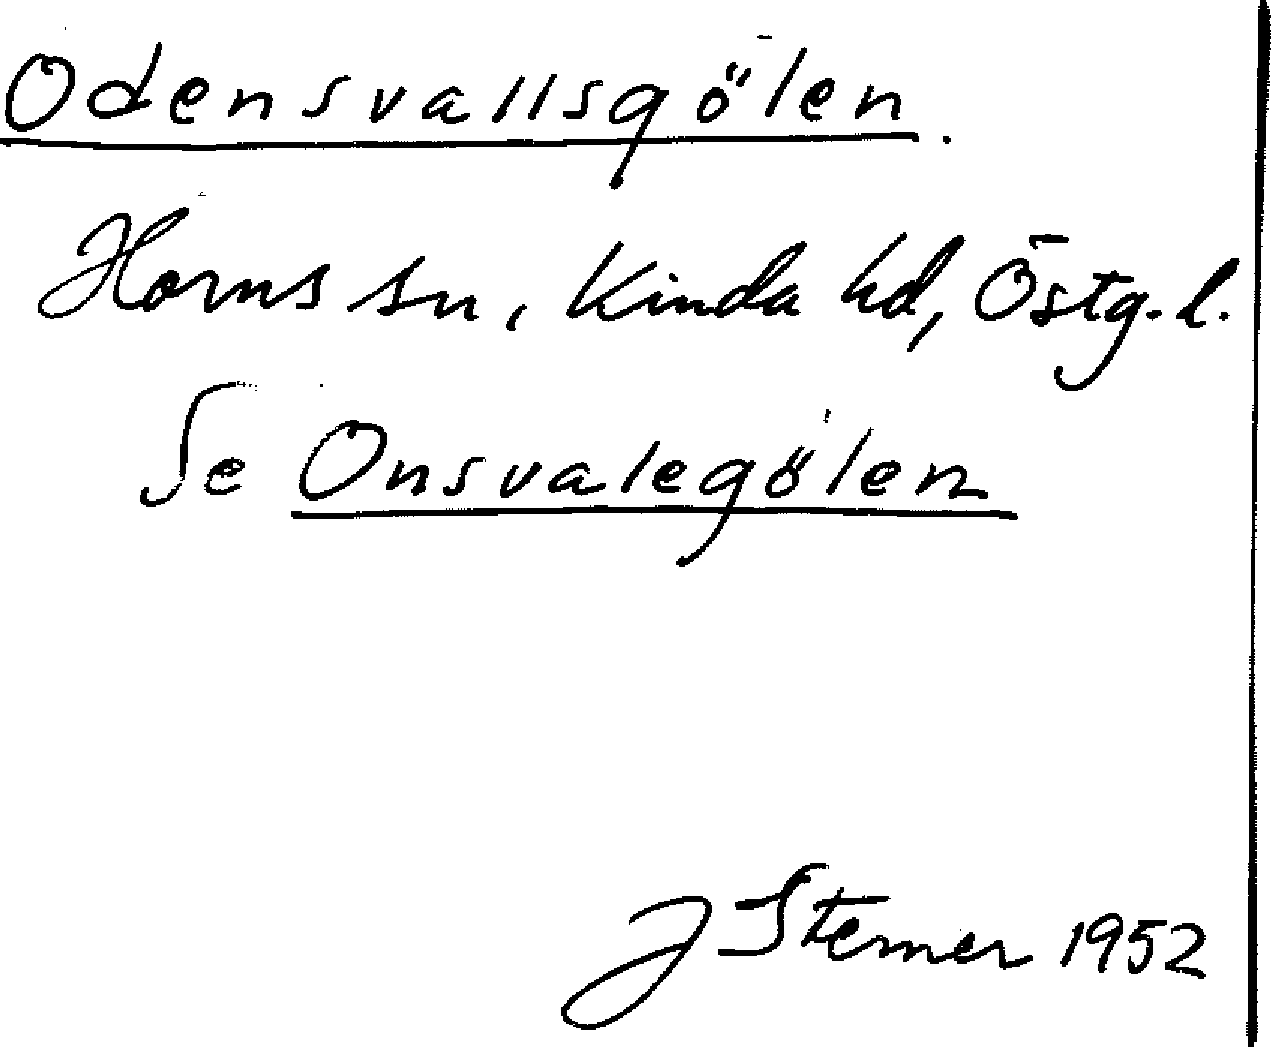 Odensvallsgölen.
Horns sn, Kinda hd, Östg. l.
Se Onsvalegölen
J Sterner 1952